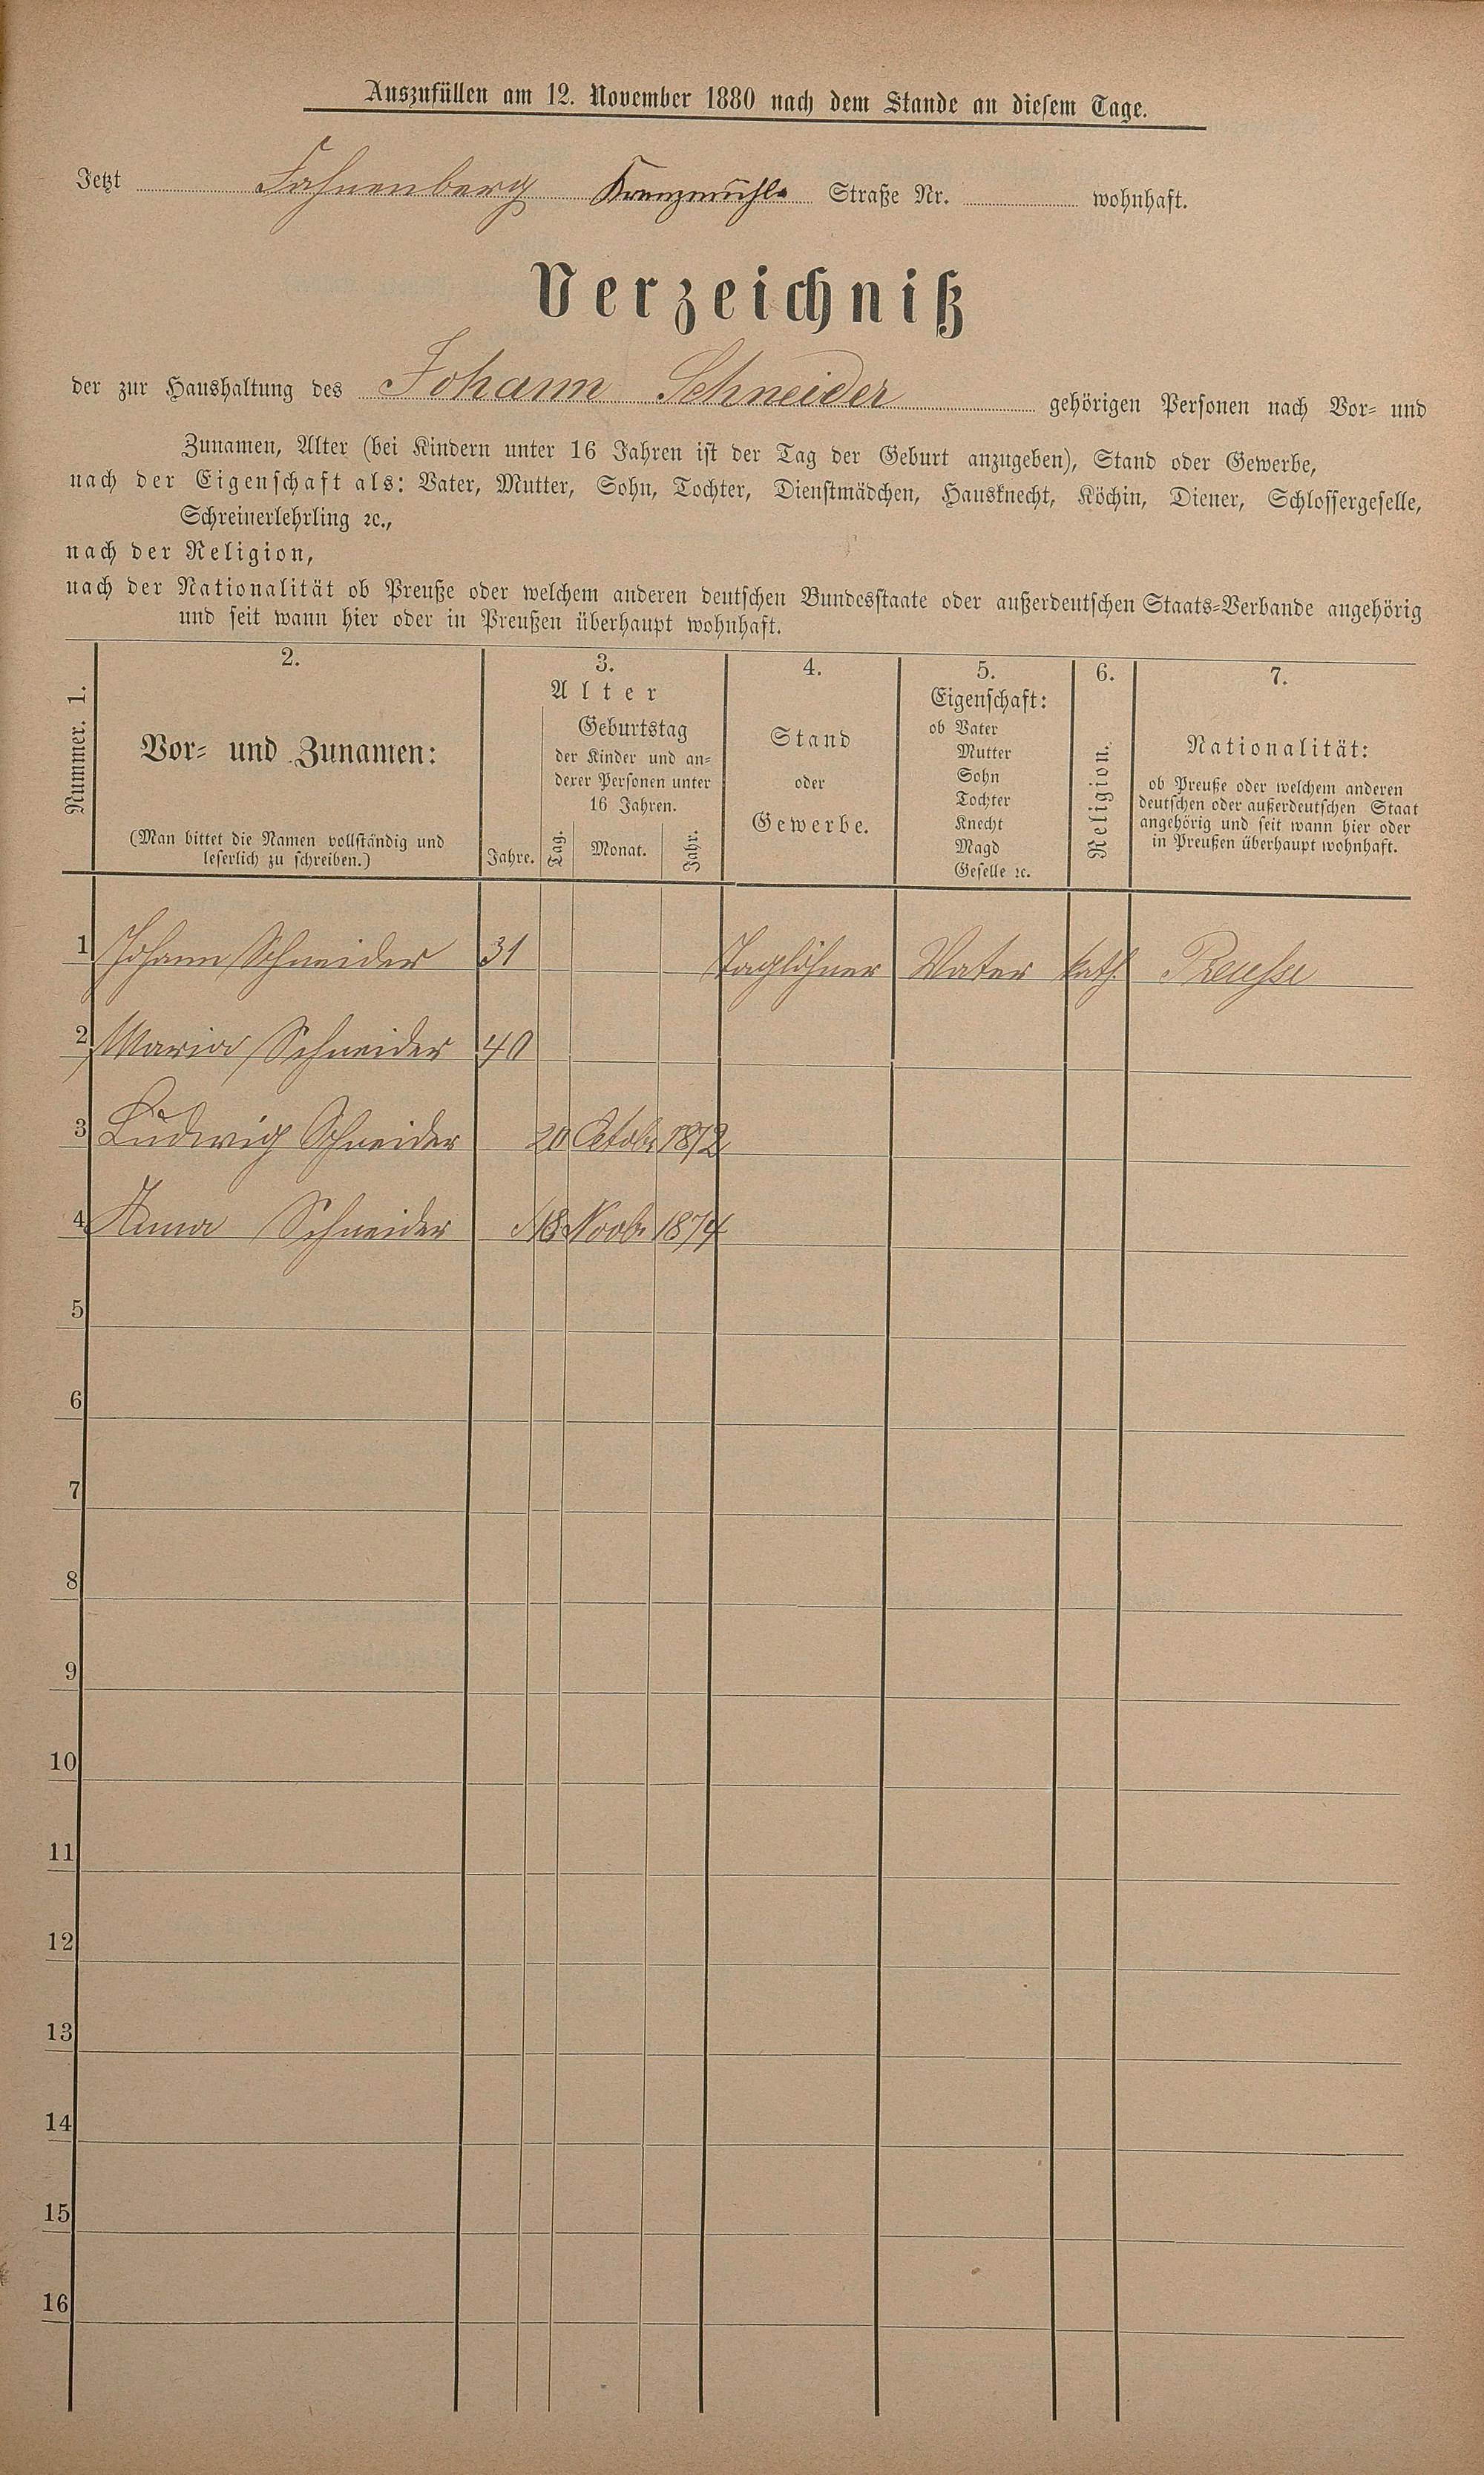 Auszufüllen am 12. November 1880 nach dem Stande an diesem Tage.
Jetzt Fahnenberg Kreuzmühle Straße Nr. wohnhaft.
Verzeichniß
der zur Haushaltung des Johann Schneider gehörigen Personen nach Vor- und
Zunamen, Alter (bei Kindern unter 16 Jahren ist der Tag der Geburt anzugeben), Stand oder Gewerbe,
nach der Eigenschaft als: Vater, Mutter, Sohn, Tochter, Dienstmädchen, Hausknecht, Köchin, Diener, Schlossergeselle,
Schreinerlehrling ꝛc.,
nach der Religion,
nach der Nationalität ob Preuße oder welchem anderen deutschen Bundesstaate oder außerdeutschen Staats-Verbande angehörig
und seit wann hier oder in Preußen überhaupt wohnhaft.
Nummer. 1.
2.
Vor- und Zunamen:
(Man bittet die Namen vollständig und
leserlich zu schreiben.)
3.
Alter
Jahre.
Geburtstag
der Kinder und an-
derer Personen unter
16 Jahren.
Tag.
Monat.
Jahr.
4.
Stand
oder
Gewerbe.
5.
Eigenschaft:
ob Vater
Mutter
Sohn
Tochter
Knecht
Magd
Geselle ꝛc.
6.
Religion.
7.
Nationalität:
ob Preuße oder welchem anderen
deutschen oder außerdeutschen Staat
angehörig und seit wann hier oder
in Preußen überhaupt wohnhaft.
1 Johann Schneider 31 Taglöhner Vater kath. Preusse
2 Maria Schneider 40
3 Ludwig Schneider 20 Octobr 1872
4 Anna Schneider 18 Novbr 1874
5
6
7
8
9
10
11
12
13
14
15
16